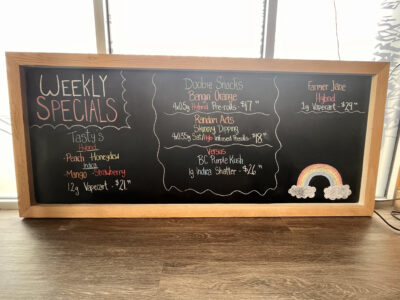 WEEKLY
SPECIALS
Tasty's
Hybrid
-Peach -Honeydew
Indica
-Mango -Strawberry
1.2g Vapecart - $21
Doobie Snacks
Bengin Orange
4x0.5g Hybrid Pre-rolls - $17
Random Acts
Skinnny Dipping
4x0.55g Sat/Hyb Infused Pre-rolls - $18
Versus
BC Purple Kush
1g Indica Shatter - $26
Farmer Jane
Hybrid
1g Vapecart - $29